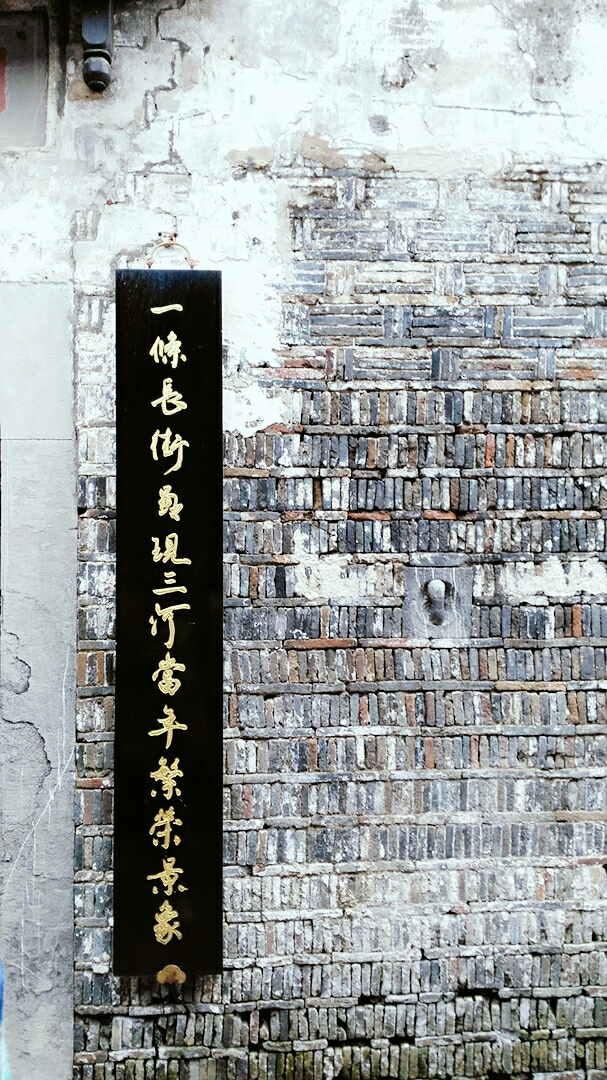 一條長街顯現三河當年繁榮景象